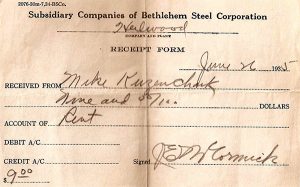 2076-30m-7,34-BSCo.
Subsidiary Companies of Bethlehem Steel Corporation
Heilwood
COMPANY AND PLANT
RECEIPT FORM
June 26 1935
RECEIVED FROM Mike
Nine and 00/100 DOLLARS
ACCOUNT OF Rent
DEBIT A/C
CREDIT A/C Signed J E McCormick
$ 9.00